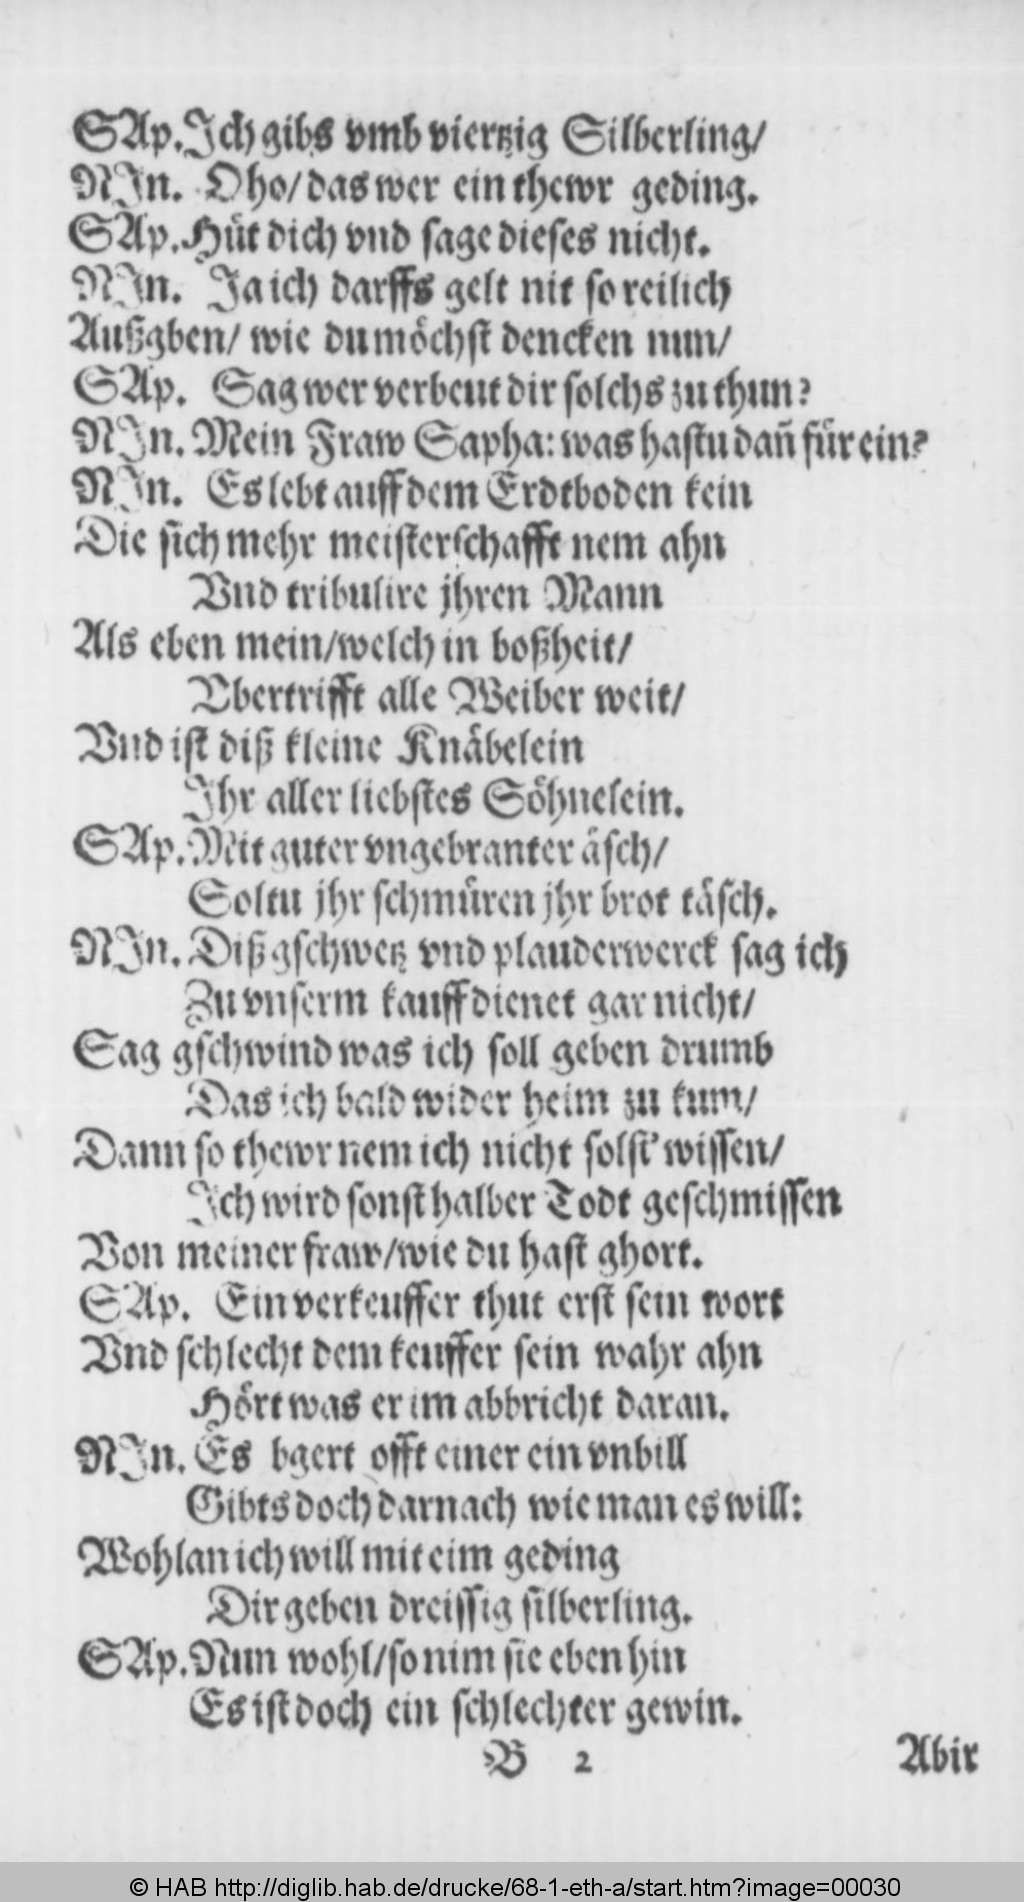 SAp. Ich gibs vmb viertzig Silberling/
NIn. Oho/ das wer ein thewr geding.
SAp. Hüt dich vnd sage dieses nicht.
NIn. Ja ich darffs gelt nit so reilich
Außgben/ wie du möchst dencken nun/
SAp. Sag wer verbeut dir solchs zu thun?
NIn. Mein Fraw Sapha: was hastu dañ für ein?
NIn. Es lebt auff dem Erdtboden kein
Die sich mehr meisterschafft nem ahn
Vnd tribulire jhren Mann
Als eben mein/ welch in boßheit/
Vbertrifft alle Weiber weit/
Vnd ist diß kleine Knäbelein
Ihr aller liebstes Söhnelein.
SAp. Mit guter vngebranter äsch/
Soltu jhr schmüren jhr brot täsch.
NIn. Diß gschwetz vnd plauderwerck sag ich
Zu vnserm kauff dienet gar nicht/
Sag gschwind was ich soll geben drumb
Das ich bald wider heim zu kum/
Dann so thewr nem ich nicht solst' wissen/
Ich wird sonst halber Todt geschmissen
Von meiner fraw/ wie du hast ghort.
SAp. Ein verkeuffer thut erst sein wort
Vnd schlecht dem keuffer sein wahr ahn
Hört was er im abbricht daran.
NIn. Es bgert offt einer ein vnbill
Gibts doch darnach wie man es will:
Wohlan ich will mit eim geding
Dir geben dreissig silberling.
SAp. Nun wohl/ so nim sie eben hin
Es ist doch ein schlechter gewin.
B 2 Abir
© HAB http://diglib.hab.de/drucke/68-1-eth-a/start.htm?image=00030